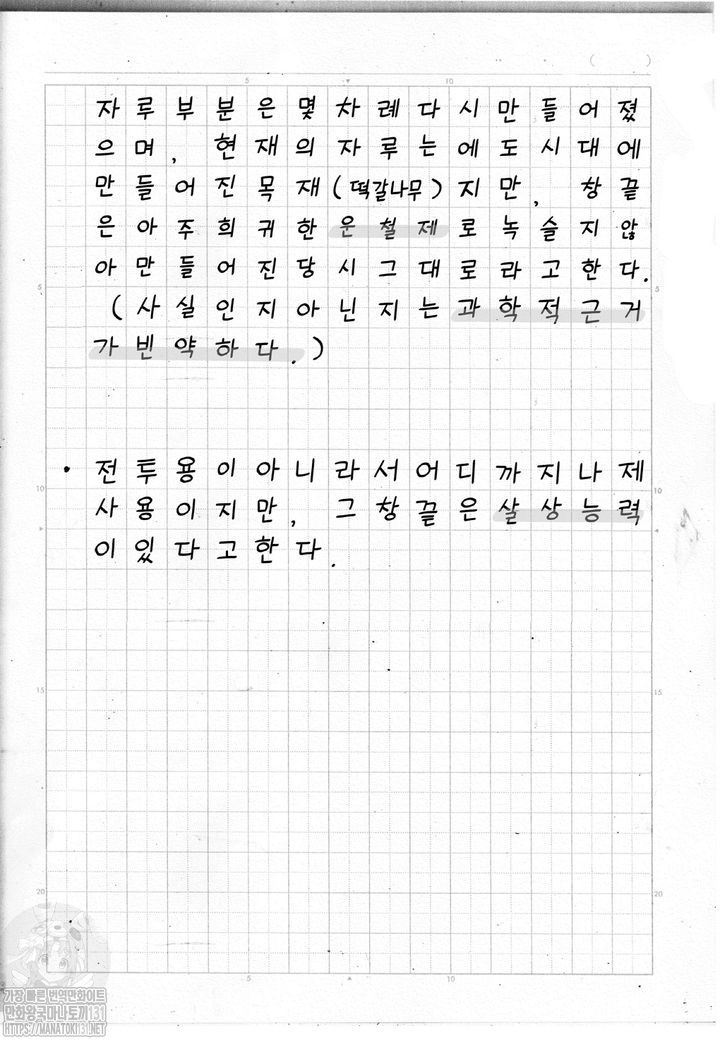 자루부분은몇차례다시만들어졌
으며, 현재의자루는에도시대에
만들어진목재(떡갈나무)지만, 창끝
은아주희귀한운철제로녹슬지않
아만들어진당시그대로라고한다.
(사실인지아닌지는과학적근거
가빈약하다.)
• 전투용이아니라서어디까지나제
사용이지만, 그창끝은살상능력
이있다고한다.
( )
5 10
5 5
10 10
15 15
20 20
5 10
가장 빠른 번역만화사이트
만화왕국마나토끼131
HTTPS://MANATOKI131.NET